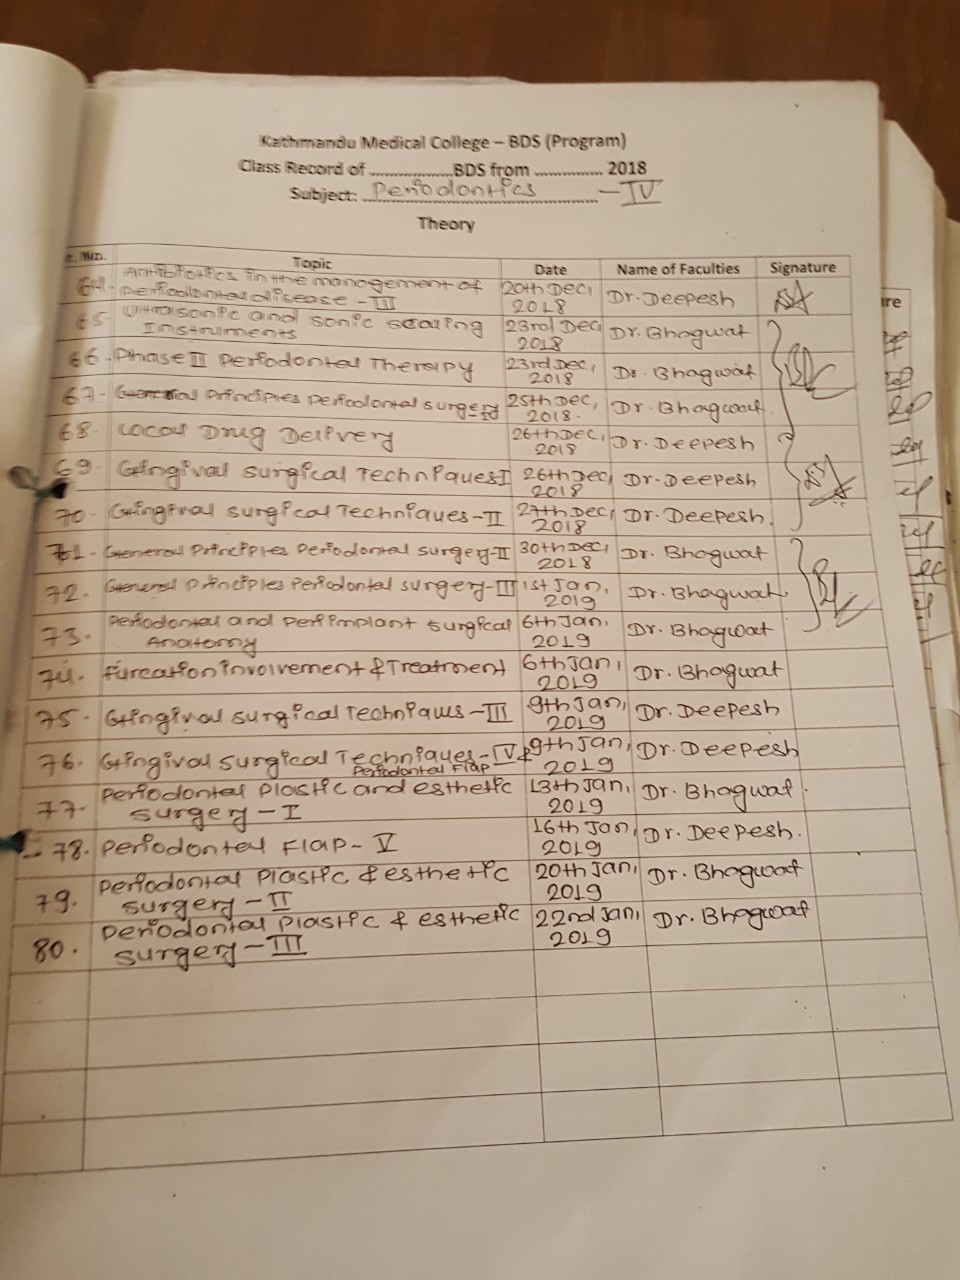 Kathmandu Medical College – BDS (Program)
Class Record of .................. BDS from ............... 2018
Subject: Periodontics - IV
Theory
Topic Date Name of Faculties Signature
64. Antibiotics in the management of 20th Dec,
periodontal disease - III 2018 Dr. Deepesh
65. Ultrasonic and sonic scaling 23rd Dec,
Instruments 2018 Dr. Bhagwat
66. Phase II Periodontal Therapy 23rd Dec,
2018 Dr. Bhagwat
67- General Principles periodontal surgery 25th Dec,
2018. Dr. Bhagwat.
68- Local Drug Delivery 26th Dec,
2018 Dr. Deepesh
69. Gingival surgical Techniques I 26th Dec,
2018 Dr. Deepesh
70. Gingival surgical Techniques - II 27th Dec,
2018 Dr. Deepesh.
71. General Principles Periodontal surgery-II 30th Dec,
2018 Dr. Bhagwat
72. General principles Periodontal surgery-III 1st Jan,
2019 Dr. Bhagwat
73. Periodontal and Periimplant surgical 6th Jan,
Anatomy 2019 Dr. Bhagwat
74. Furcation involvement & Treatment 6th Jan,
2019 Dr. Bhagwat
75. Gingival surgical Techniqus - III 9th Jan,
2019 Dr. Deepesh
76. Gingival surgical Techniques - IV & 9th Jan,
Periodontal Flap 2019 Dr. Deepesh
77- Periodontal plastic and esthetic 13th Jan,
surgery - I 2019 Dr. Bhagwat.
78. Periodontal Flap - V 16th Jan,
2019 Dr. Deepesh.
79. Periodontal Plastic & esthetic 20th Jan,
surgery - II 2019 Dr. Bhagwat
80. Periodontal Plastic & esthetic 22nd Jan,
surgery - III 2019 Dr. Bhagwat